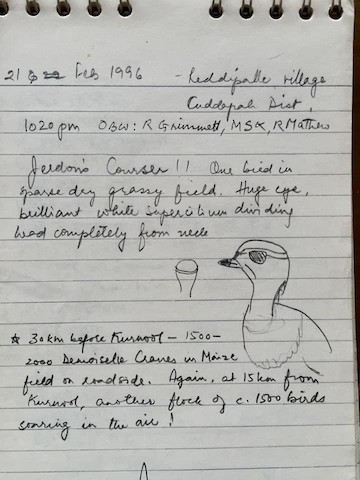 21 Feb 1996 - Reddipalle village
Cuddapah Dist,
1020pm OBW: R Grimmett, MSK, R Mathew
Jerdon's Courser!! One bird in
sparse dry grassy field. Huge eye,
brilliant white supercilium dividing
head completely from neck
* 30km before Kurnool - 1500-
2000 Demoiselle Cranes in Maize
field on roadside. Again, at 15km from
Kurnool, another flock of c. 1500 birds
soaring in the air!